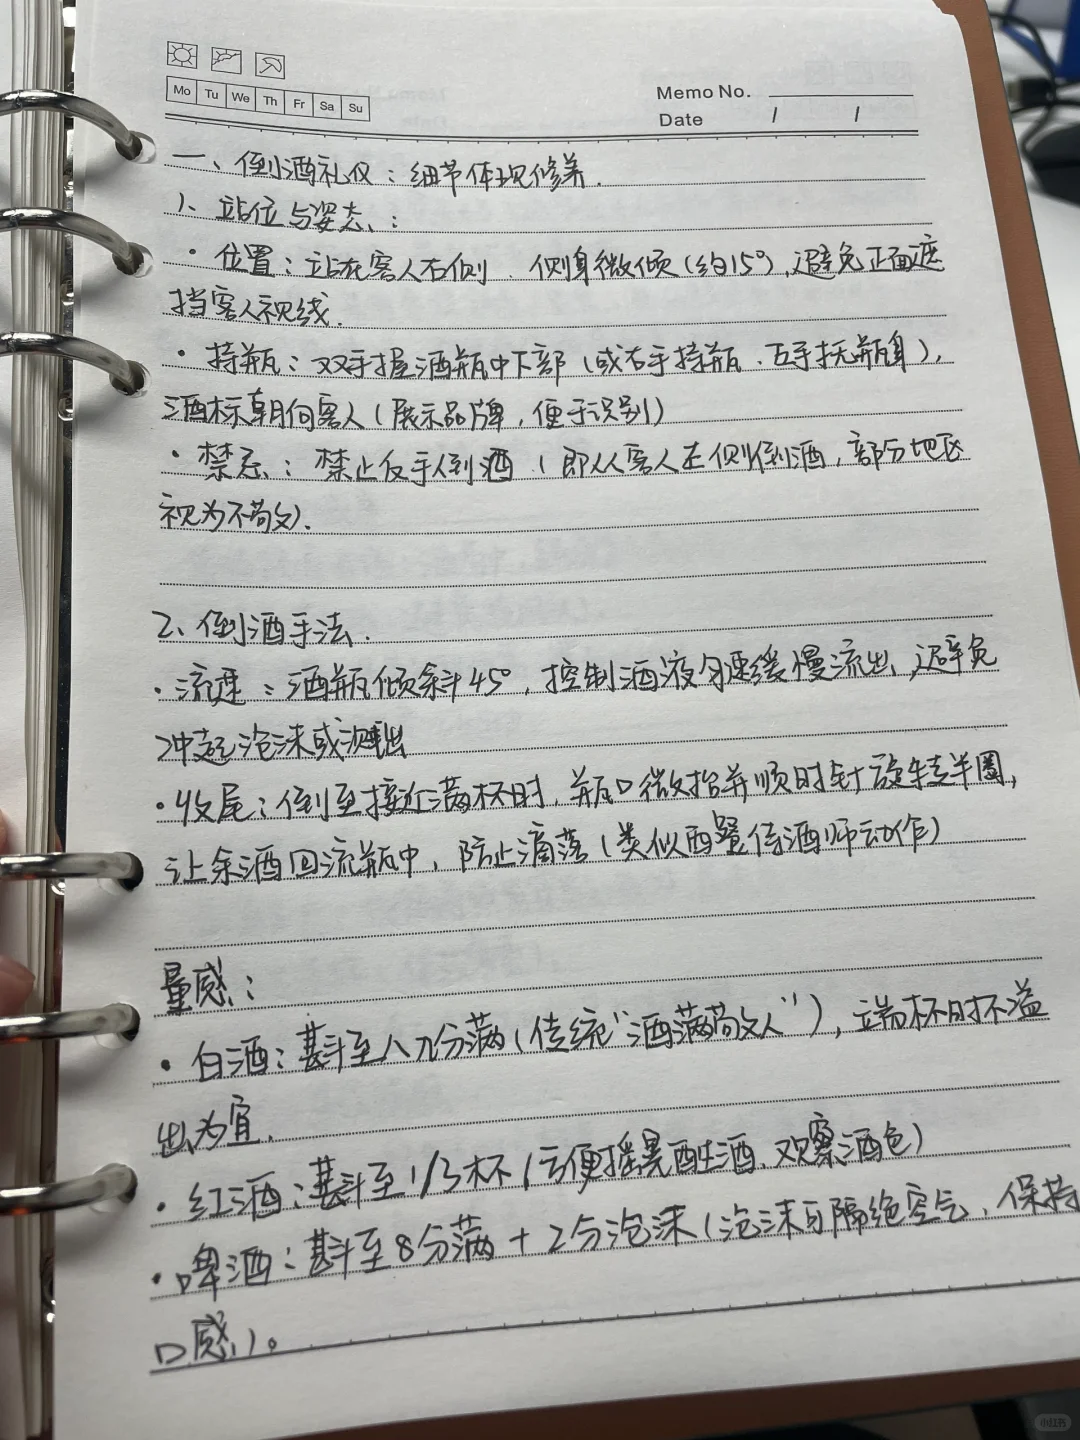 Mo Tu We Th Fr Sa Su
Memo No.
Date / /
一、倒酒礼仪：细节体现修养.
1、站位与姿态：
· 位置：站在客人右侧、侧身微倾(约15°),避免正面遮
挡客人视线.
· 持瓶：双手握酒瓶中下部(或右手持瓶、左手扶瓶身),
酒标朝向客人(展示品牌,便于识别)
· 禁忌：禁止反手倒酒(即从客人左侧倒酒,部分地区
视为不敬).
2、倒酒手法.
· 流速：酒瓶倾斜45°,控制酒液匀速缓慢流出,避免
冲起泡沫或溅出
· 收尾：倒至接近满杯时,瓶口微抬并顺时针旋转半圈,
让余酒回流瓶中,防止滴落(类似西餐侍酒师动作)
量感：
· 白酒：斟至八九分满(传统"酒满敬人"),端杯时不溢
出为宜.
· 红酒：斟至1/3杯(方便摇晃醒酒、观察酒色)
· 啤酒：斟至8分满+2分泡沫(泡沫可隔绝空气、保持
口感)。
小红书